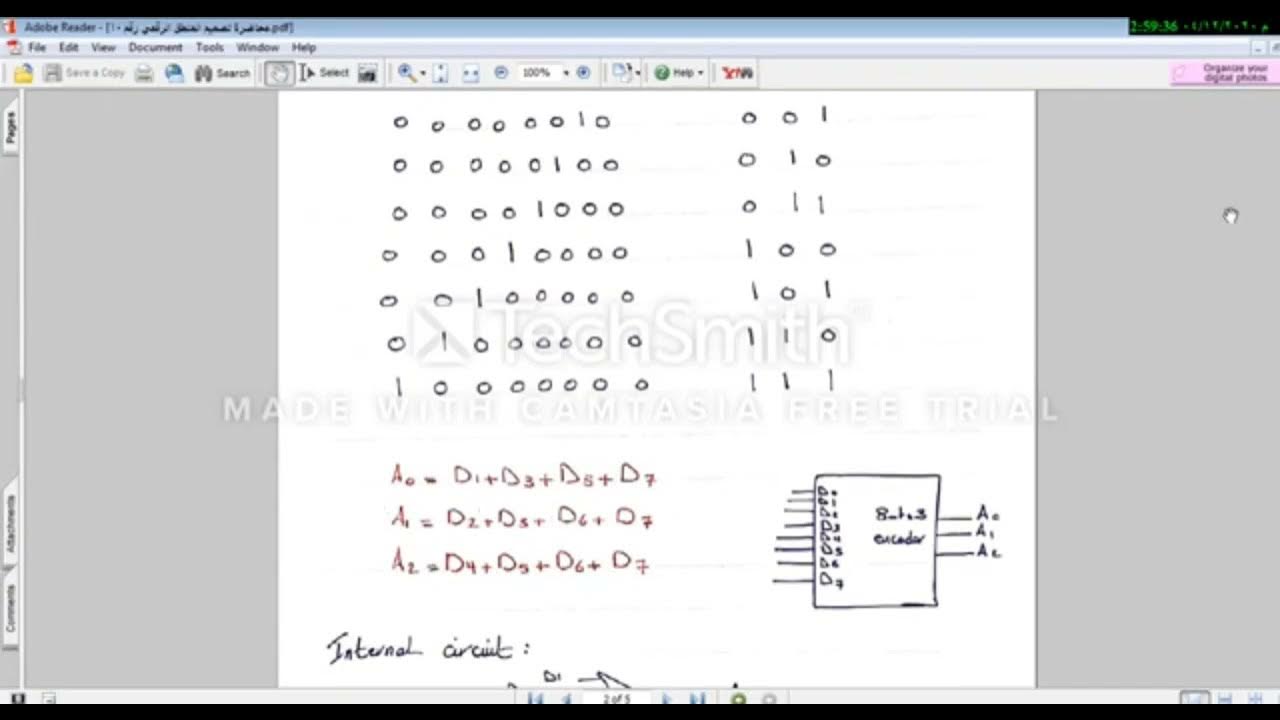 Adobe Reader - [محاضرة تصميم المنطق الرقمي رقم ١٠.pdf]
2:59:36 م ٠٤/١٢/٢٠٢٠
File Edit View Document Tools Window Help
Save a Copy Search Select 100% Help Y! Organize your
digital photos
Pages
0 0 0 0 0 0 1 0 0 0 1
0 0 0 0 0 1 0 0 0 1 0
0 0 0 0 1 0 0 0 0 1 1
0 0 0 1 0 0 0 0 1 0 0
0 0 1 0 0 0 0 0 1 0 1
0 1 0 0 0 0 0 0 1 1 0
1 0 0 0 0 0 0 0 1 1 1
TechSmith
MADE WITH CAMTASIA FREE TRIAL
A0 = D1+D3+D5+D7
A1 = D2+D3+D6+D7
A2 = D4+D5+D6+D7
D0
D1
D2
D3
D4
D5
D6
D7
8-to-3
encoder
A0
A1
A2
Attachments
Comments
Internal circuit:
D1
2 of 5